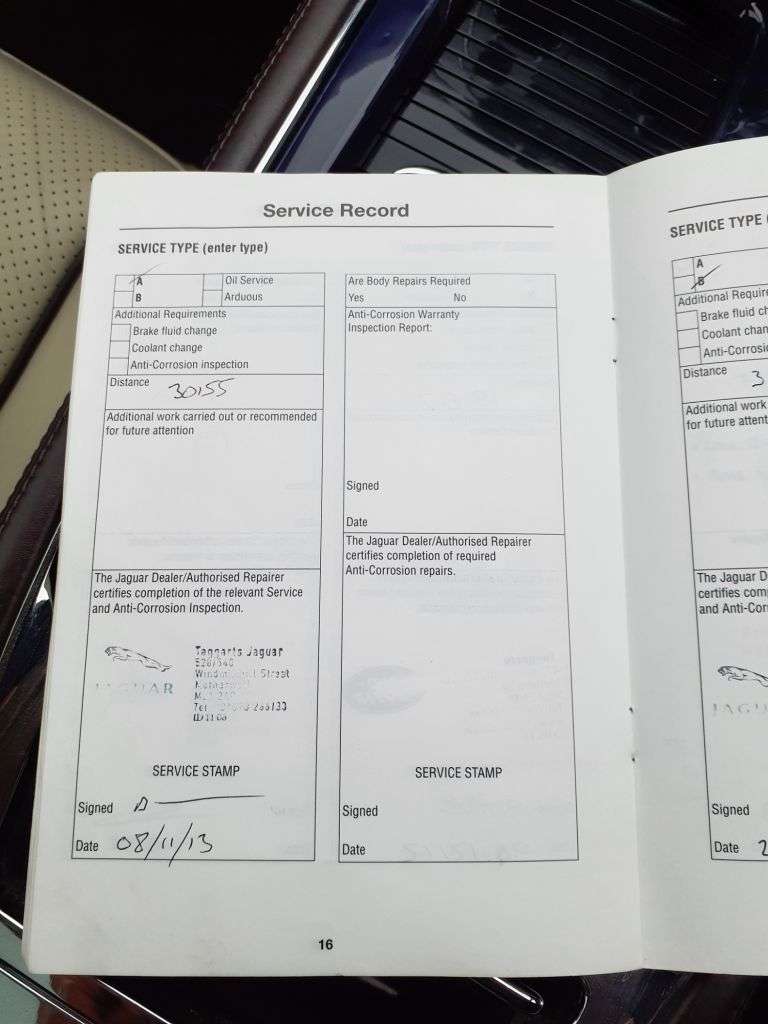 Service Record
SERVICE TYPE (enter type)
A
Oil Service
B
Arduous
Additional Requirements
Brake fluid change
Coolant change
Anti-Corrosion inspection
Distance 30155
Additional work carried out or recommended
for future attention
The Jaguar Dealer/Authorised Repairer
certifies completion of the relevant Service
and Anti-Corrosion Inspection.
JAGUAR
Taggarts Jaguar
Street
SERVICE STAMP
Signed
Date 08/11/13
Are Body Repairs Required
Yes No
Anti-Corrosion Warranty
Inspection Report:
Signed
Date
The Jaguar Dealer/Authorised Repairer
certifies completion of required
Anti-Corrosion repairs.
SERVICE STAMP
Signed
Date
16
SERVICE TYPE
A
B
Additional Require
Brake fluid ch
Coolant chan
Anti-Corrosi
Distance 3
Additional work
for future attent
The Jaguar D
certifies com
and Anti-Cor
JAGU
Signed
Date 2